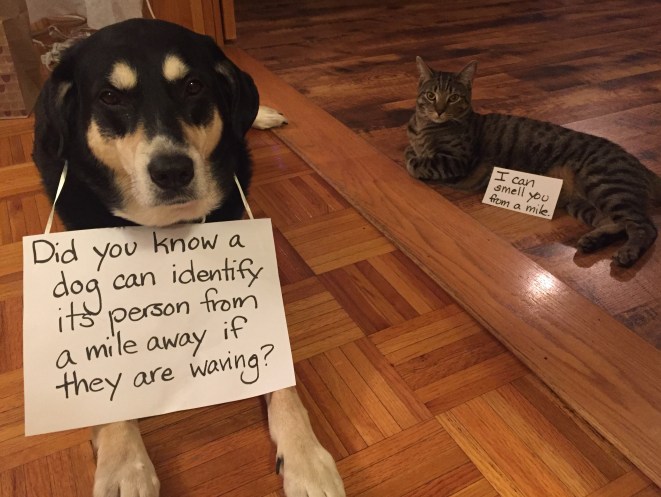 Did you know a
dog can identify
its person from
a mile away if
they are waving?
I can
smell you
from a mile.